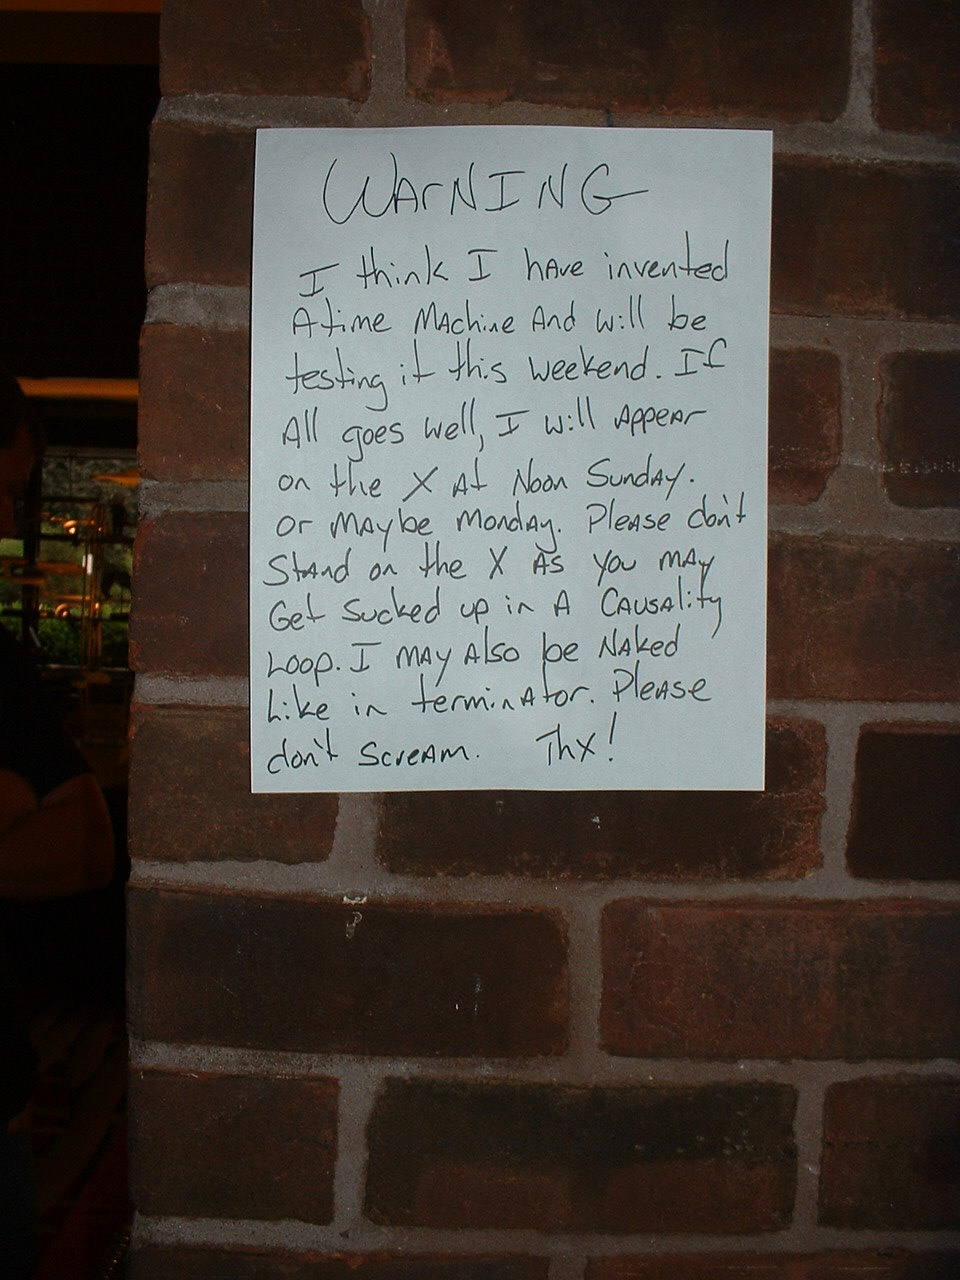 WARNING
I think I have invented
A time Machine And will be
testing it this weekend. If
All goes well, I will Appear
on the X At Noon Sunday.
or Maybe Monday. Please don't
Stand on the X As you may
Get sucked up in A Causality
Loop. I may Also be Naked
Like in terminator. Please
don't scream. Thx!